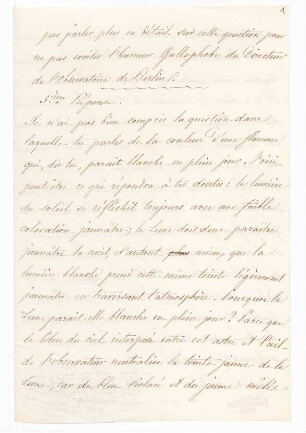 pas parler plus en détail sur cette question pour
ne pas exciter l'humeur Gallophobe du Directeur
de l'Observatoire de Berlin!.
5.ème Réponse.
Je n'ai pas bien compris la question dans
laquelle tu parles de la couleur d'une flamme
qui, dis tu, paraît blanche en plein jour. Voici
peut être ce qui répondra à tes doutes: la lumière
du soleil se réfléchit toujours avec une faible
coloration jaunâtre; la Lune doit donc paraître
jaunâtre la nuit, d'autant moins que la
lumière blanche prend cette même teinte légèrement
jaunâtre en traversant l'atmosphère. Pourquoi la
Lune paraît-elle blanche en plein jour? Parce que
le bleu du ciel interposé entre cet astre et l'œil
de l'observateur neutralise la teinte jaune de la
Lune, car du bleu violacé et du jaune mêlés